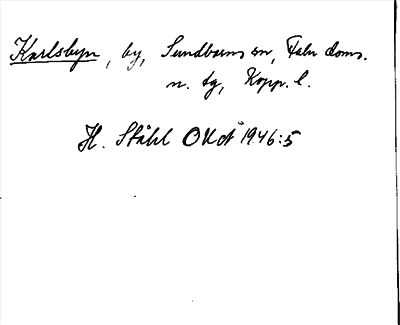 Karlsbyn, by, Sundborns sn, Falu doms.
n. tg, Kopp. l.
H. Ståhl OUoÅ 1946:5